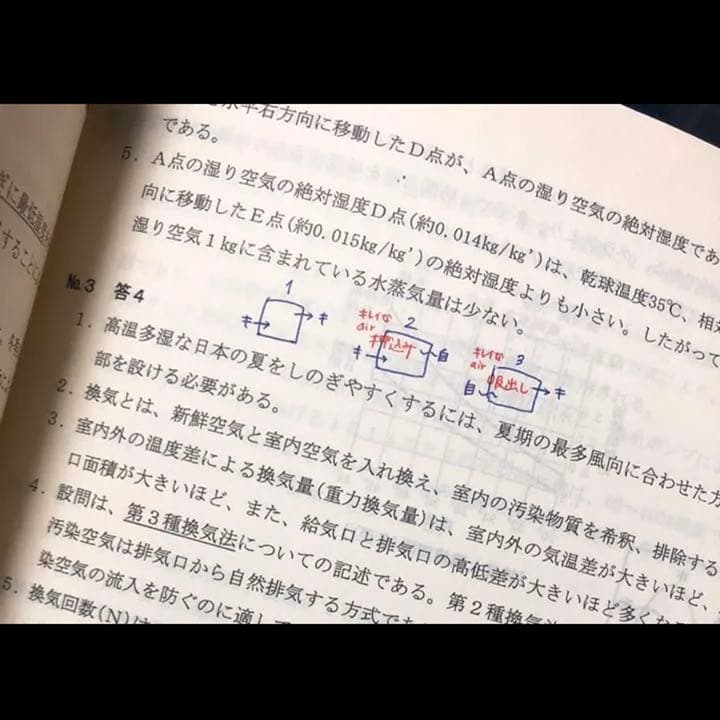 水平右方向に移動したD点が、A点の湿り空気の絶対湿度であ
である。
5. A点の湿り空気の絶対湿度D点(約0.014kg/kg')は、乾球温度35℃、相対
向に移動したE点(約0.015kg/kg')の絶対湿度よりも小さい。したがって
湿り空気1kgに含まれている水蒸気量は少ない。
№3 答4
1
キ キ
2
キレイな
air
キ 押込み 自
3
キレイな
air
自 吸出し キ
1. 高温多湿な日本の夏をしのぎやすくするには、夏期の最多風向に合わせた方
部を設ける必要がある。
2. 換気とは、新鮮空気と室内空気を入れ換え、室内の汚染物質を希釈、排除する
3. 室内外の温度差による換気量(重力換気量)は、室内外の気温差が大きいほど、
口面積が大きいほど、また、給気口と排気口の高低差が大きいほど多くな
4. 設問は、第3種換気法についての記述である。第2種換気
汚染空気は排気口から自然排気する方式であ
染空気の流入を防ぐのに適して
5. 換気回数(N)は